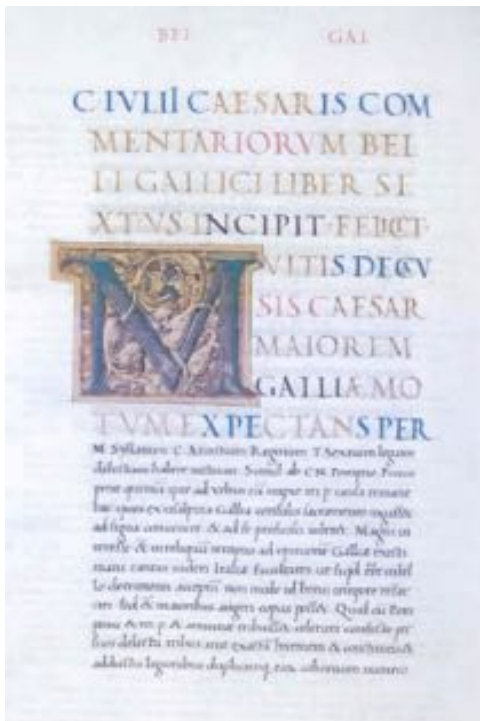 BEL GAL
C IVLII CAESARIS COM
MENTARIORVM BEL
LI GALLICI LIBER SE
XTVS INCIPIT FELICIT
MVLTIS DE CAV
SIS CAESAR
MAIOREM
GALLIÆ MO
TVM EXPECTANS PER
M. Syllanum C. Antistium Reginum T. Sextium legatos
delectum habere Simul ab CN. Pompeio Procos
quoniam ipse ad urbem cū rei p. causa remane
quos ex cisalpina Gallia consulis sacramento
ad signa convenire & ad se proficisci Magni in
teresse & in reliquū tempus ad Galliæ existi
mans videri Italiæ facultates ut si
lo detrimenti acceptū non modo id tempore resar
ciri sed & maioribus augeri copiis posset. Quod cū Pom
& rei p. & amicitiæ tribuisset, confecto
suos delectu tribus ante exactā hyemem & constitutis &
adductis legionibus cohortium numero